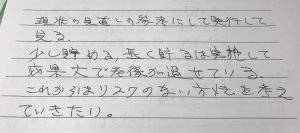 現状の見直しの参考にして実行して
見る.
少し貯める、長く貯るは実施して
効果大で老後が過せている.
これからはよりスクのない方法を考え
ていきたい.